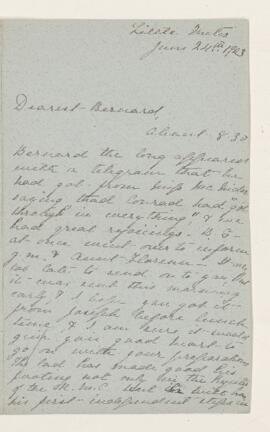 Little
June 24th 1923
Dearest Bernard,
about 8.30
Bernard the long appeared
with a telegram that he
had got from Miss
saying that Conrad had "got
through in everything" & we
had great rejoicings.
at once went over to inform
G.M. & Aunt Florence
late to send on to you but
it was sent this morning
early & I hope you got it
from Joseph before lunch
time & I am sure it would
give you good heart to
go on with your preparation
The lad has made good his
footing not only in the
of the R.N.C. but
his first independent steps in